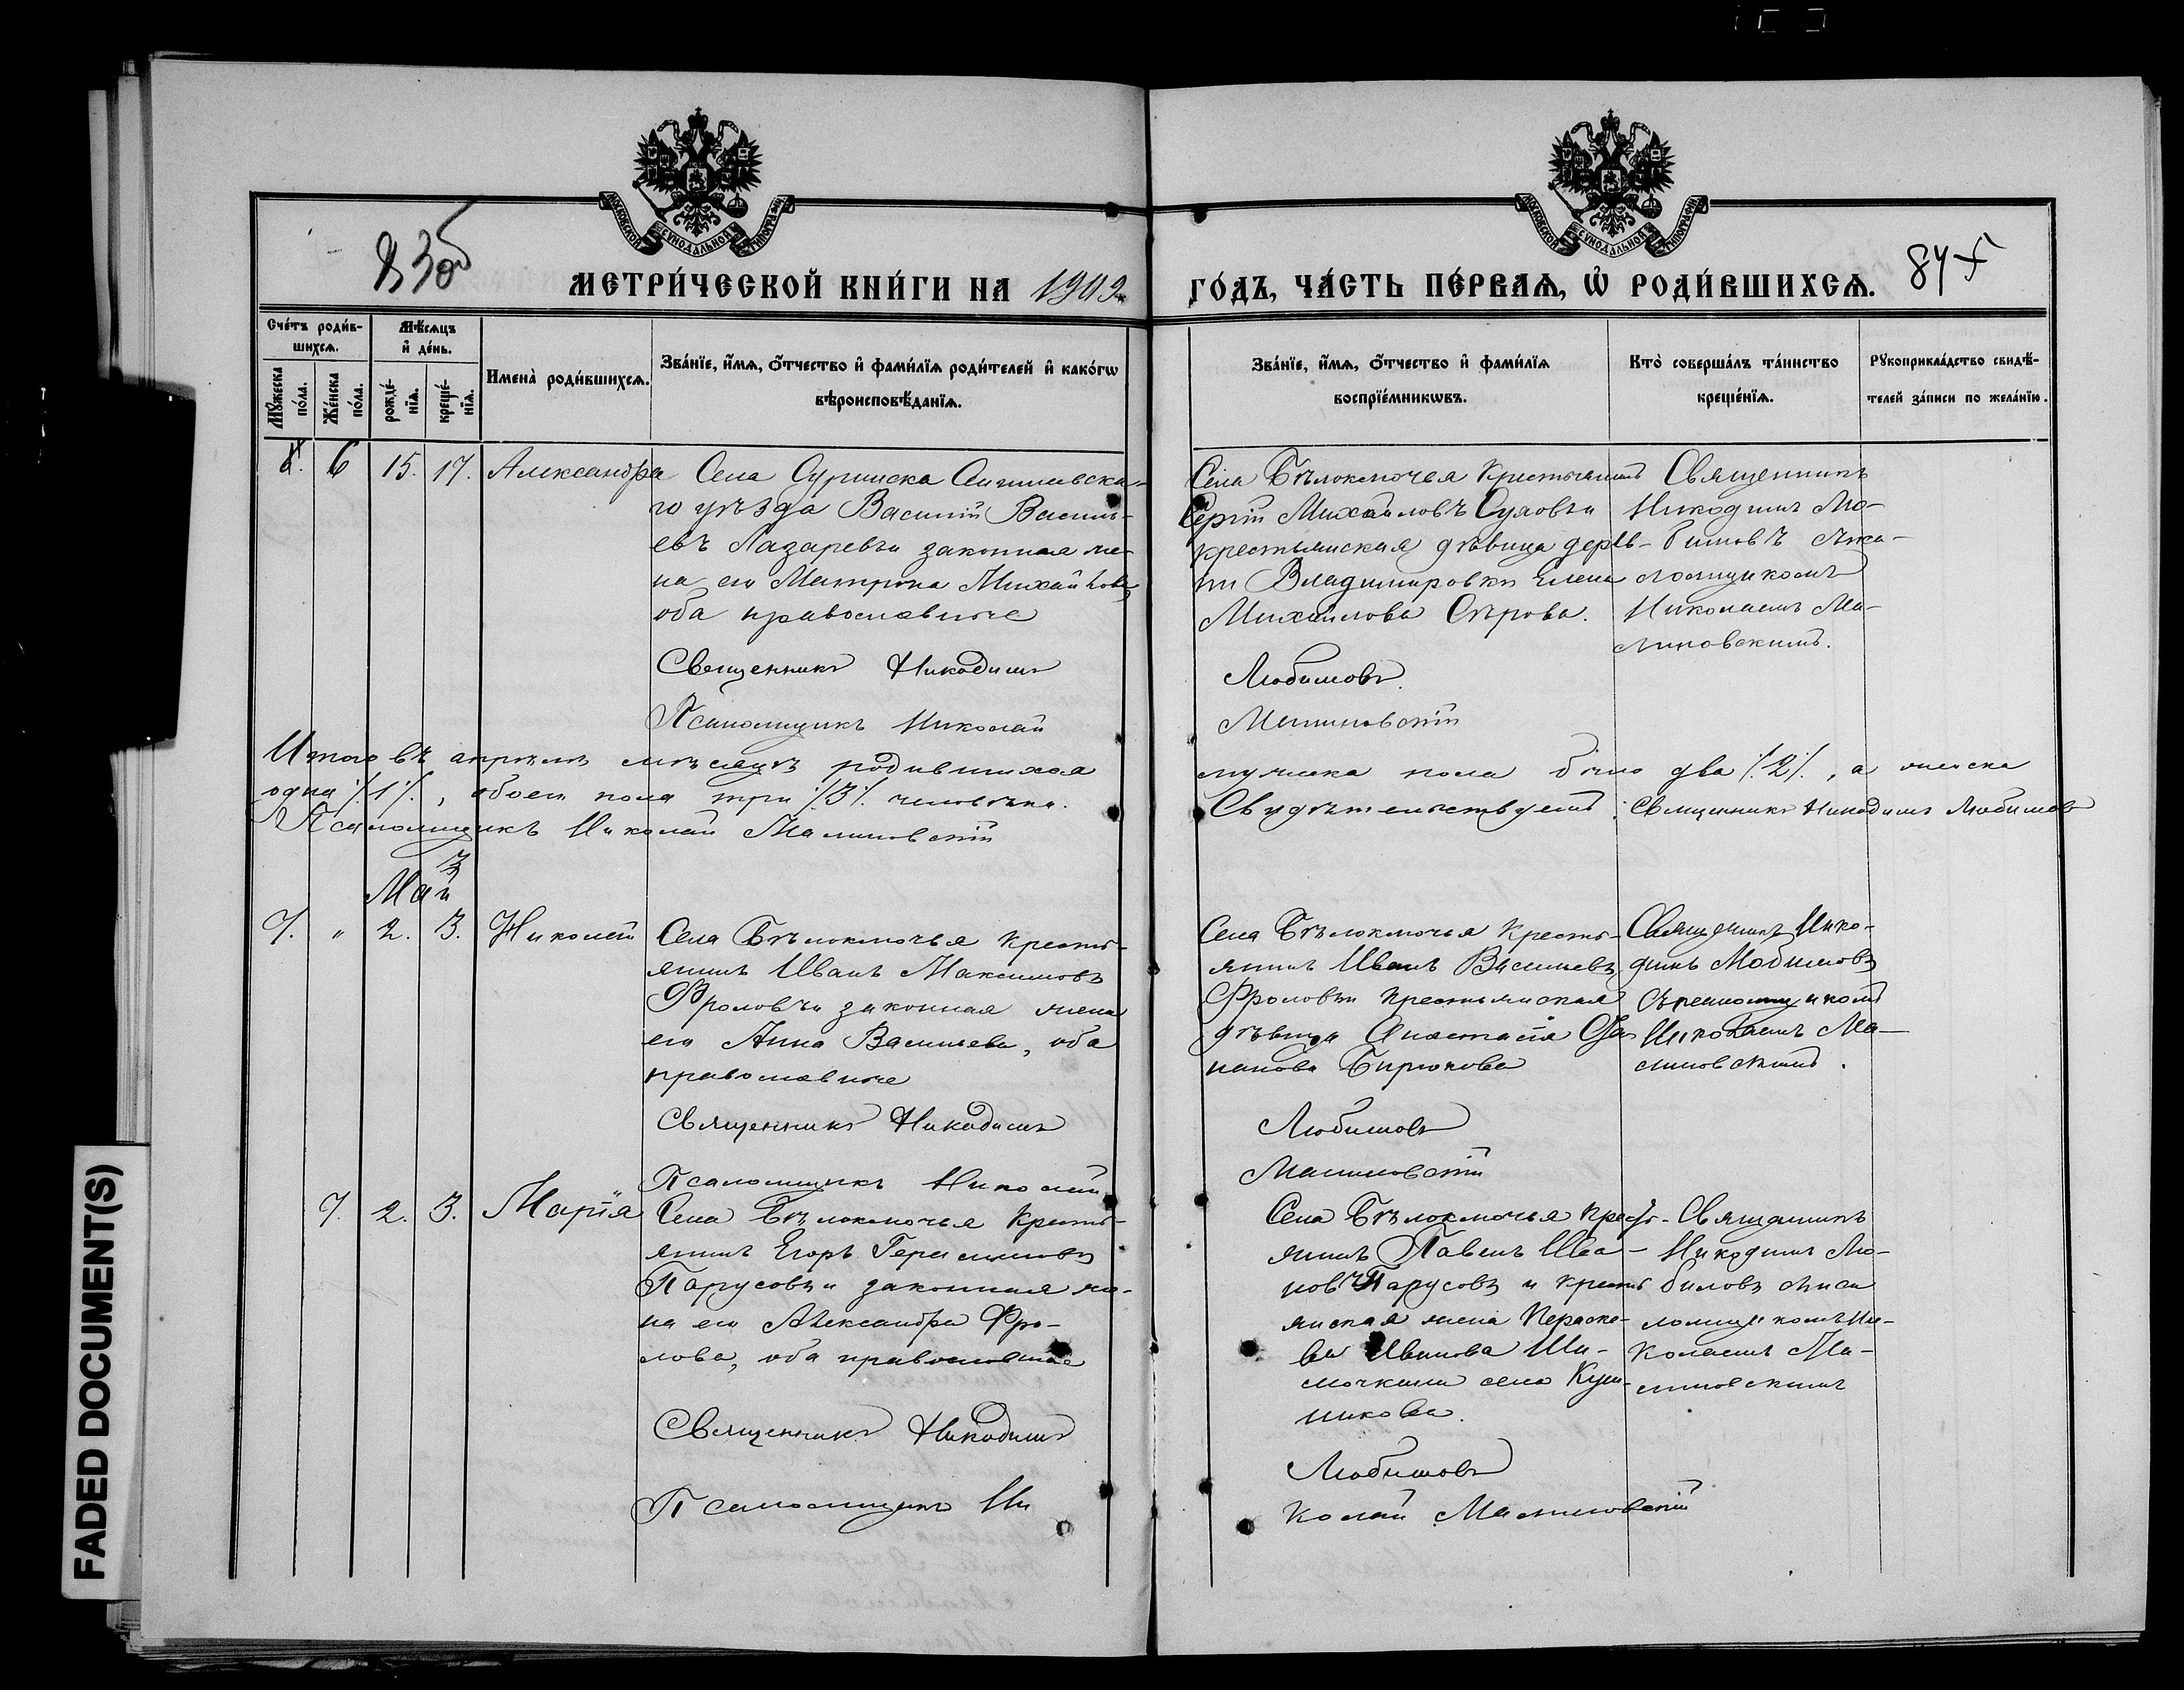 МЕТРИ́ЧЕСКОЙ КНИ́ГИ НА 1902
ГО́ДЪ, ЧА́СТЬ ПЕ́РВАѦ, Ѡ҆ РОДИ́ВШИХСѦ.
84
Сче́тъ роди́в-
шихсѧ.
Мѣ́сѧцъ
и҆ де́нь.
Имена̀ роди́вшихсѧ.
Зва́нїе, и҆́мѧ, ѻ҆́тчество и҆ фами́лїѧ роди́телей и҆ како́гѡ
вѣроисповѣ́данїѧ.
Мꙋ́жеска
по́ла.
Же́нска
по́ла.
рожде́-
нїѧ.
креще́-
нїѧ.
Зва́нїе, и҆́мѧ, ѻ҆́тчество и҆ фами́лїѧ
воспрїе́мникѡвъ.
Кто̀ соверша́лъ та́инство
креще́нїѧ.
Рꙋкоприкла́дство свидѣ́-
телей за́писи по жела́нїю.
6 15. 17. Александра
Села Суринска Сенгилеевска-
го уѣзда Василій Василь-
евъ Лазаревъ и законная же-
на его Матрона Михайлова,
оба православные
Священникъ Никодимъ
Псаломщикъ Николай
Села Бѣлоключья крестьянинъ
Сергій Михайловъ Суховъ и
крестьянская дѣвица дерев-
ни Владимировки Елена
Михайлова Сѣрова.
Любимовъ.
Малиновскій
Священникъ
Никодимъ Лю-
бимовъ съ пса-
ломщикомъ
Николаемъ Ма-
линовскимъ.
Итого въ апрѣлѣ мѣсяцѣ родившихся
мужска пола было два /2/, а женска
одна /1/, обоего пола три /3/ человѣка.
Свидѣтельствуемъ: Священникъ Никодимъ Любимовъ
Псаломщикъ Николай Малиновскій
Май
7. „ 2. 3. Николай
Села Бѣлоключья кресть-
янинъ Иванъ Максимовъ
Фроловъ и законная жена
его Анна Васильева, оба
православные
Священникъ Никодимъ
Псаломщикъ Николай
Села Бѣлоключья кресть-
янинъ Иванъ Васильевъ
Фроловъ и крестьянская
дѣвица Анастасія
Бирюкова
Любимовъ
Малиновскій
Священникъ Нико-
димъ Любимовъ
съ псаломщикомъ
Николаемъ Ма-
линовскимъ.
7. 2. 3. Марія
Села Бѣлоключья кресть-
янинъ Егоръ Герасимовъ
Парусовъ и законная же-
на его Александра Фро-
лова, оба православные
Священникъ Никодимъ
Псаломщикъ Ни
Села Бѣлоключья кресть-
янинъ Павелъ Ива-
новъ Парусовъ и кресть
янская жена Параске-
ва Иванова
села
никова.
Любимовъ
колай Малиновскій
Священникъ
Никодимъ Лю-
бимовъ съ пса
ломщикомъ Ни-
колаемъ Ма-
линовскимъ
FADED DOCUMENT(S)